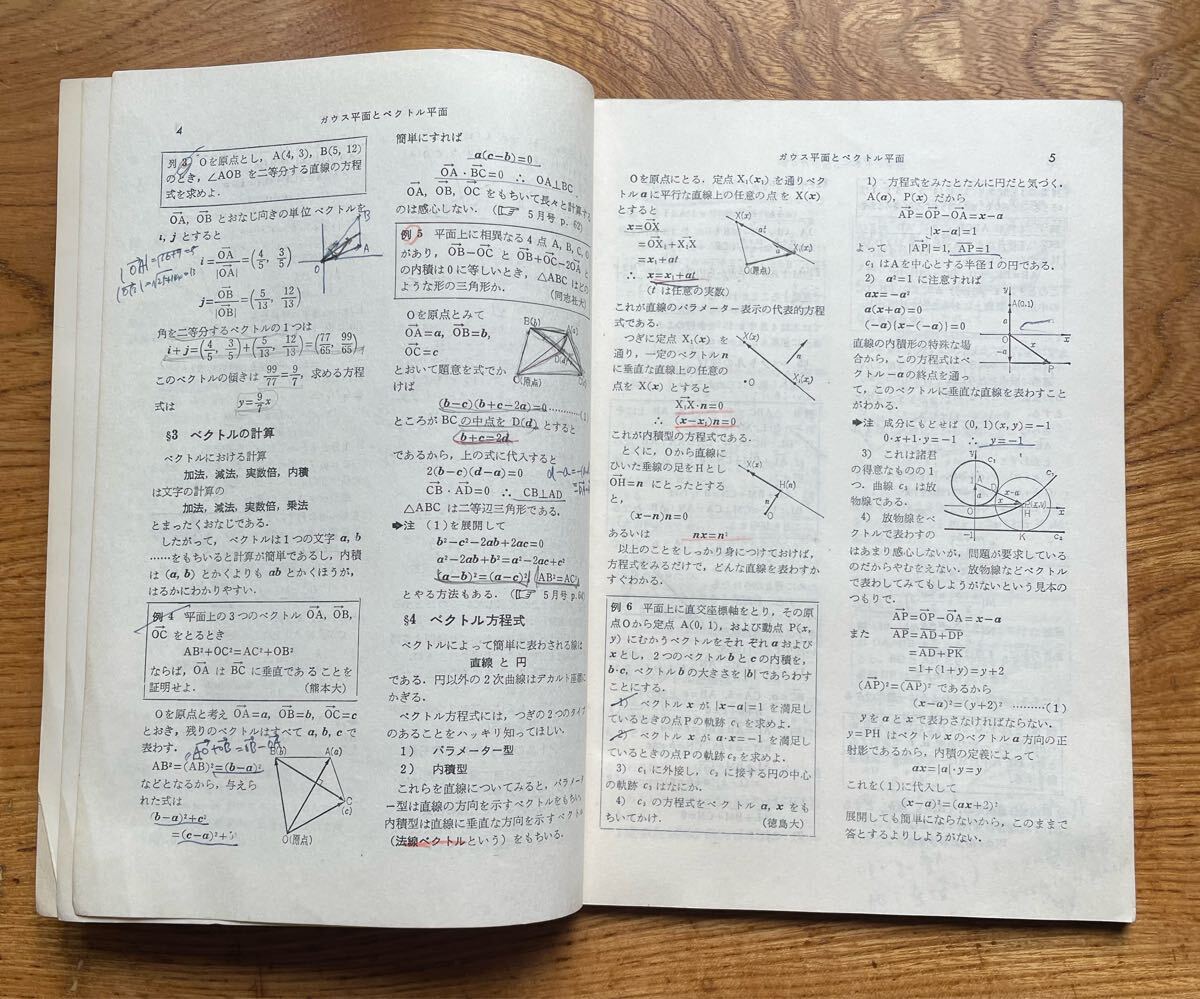 4
ガウス平面とベクトル平面
例3 Oを原点とし，A(4, 3)，B(5, 12)
のとき，∠AOB を二等分する直線の方程
式を求めよ．
OA, OB とおなじ向きの単位ベクトルを
i, j とすると
i=OA/|OA|=(4/5, 3/5)
j=OB/|OB|=(5/13, 12/13)
角を二等分するベクトルの1つは
i+j=(4/5, 3/5)+(5/13, 12/13)=(77/65, 99/65)
このベクトルの傾きは 99/77=9/7，求める方程
式は y=9/7x
B
A
O
§3 ベクトルの計算
ベクトルにおける計算
加法，減法，実数倍，内積
は文字の計算の
加法，減法，実数倍，乗法
とまったくおなじである．
したがって，ベクトルは1つの文字 a, b
……をもちいると計算が簡単であるし，内積
は (a, b) とかくよりも ab とかくほうが，
はるかにわかりやすい．
例4 平面上の3つのベクトル OA, OB,
OC をとるとき
AB²+OC²=AC²+OB²
ならば，OA は BC に垂直であることを
証明せよ．（熊本大）
Oを原点と考え OA=a, OB=b, OC=c
とおき，残りのベクトルはすべて a, b, c で
表わす．
AB²=(AB)²=(b-a)²
などとなるから，与えら
れた式は
(b-a)²+c²
=(c-a)²+
B(b)
A(a)
C
(c)
O(原点)
簡単にすれば
a(c-b)=0
OA・BC=0 ∴ OA⊥BC
OA, OB, OC をもちいて長々と計算する
のは感心しない．（☞ 5月号 p. 62）
例5 平面上に相異なる4点 A, B, C, O
があり，OB-OC と OB+OC-2OA と
の内積は0に等しいとき，△ABC はどの
ような形の三角形か．（同志社大）
Oを原点とみて
OA=a, OB=b,
OC=c
とおいて題意を式でか
けば
B(b)
A(a)
D(d)
O(原点)
(b-c)(b+c-2a)=0 …………(1)
ところが BC の中点を D(d) とすると
b+c=2d
であるから，上の式に代入すると
2(b-c)(d-a)=0
CB・AD=0 ∴ CB⊥AD
△ABC は二等辺三角形である．
➡注 (1)を展開して
b²-c²-2ab+2ac=0
a²-2ab+b²=a²-2ac+c²
(a-b)²=(a-c)² AB²=AC²
とやる方法もある．（☞ 5月号 p.64）
§4 ベクトル方程式
ベクトルによって簡単に表わされる線は
直線 と 円
である．円以外の2次曲線はデカルト座標に
かぎる．
ベクトル方程式には，つぎの2つのタイプ
のあることをハッキリ知ってほしい．
1) パラメーター型
2) 内積型
これらを直線についてみると，パラメータ
ー型は直線の方向を示すベクトルをもちい
内積型は直線に垂直な方向を示すベクトル
（法線ベクトルという）をもちいる．
ガウス平面とベクトル平面
5
Oを原点にとる．定点 X₁(x₁) を通りベク
トル a に平行な直線上の任意の点を X(x)
とすると
x=OX
=OX₁+X₁X
=x₁+at
∴ x=x₁+at
(t は任意の実数)
X(x)
at
a
X₁(x₁)
O(原点)
これが直線のパラメーター表示の代表的方程
式である．
つぎに定点 X₁(x) を
通り，一定のベクトル n
に垂直な直線上の任意の
点を X(x) とすると
X₁X・n=0
∴ (x-x₁)n=0
X(x)
n
O
X₁(x₁)
これが内積型の方程式である．
とくに，Oから直線に
ひいた垂線の足をHとし
OH=n にとったとする
と，
(x-n)n=0
あるいは nx=n²
X(x)
H(n)
n
O
以上のことをしっかり身につけておけば，
方程式をみるだけで，どんな直線を表わすか
すぐわかる．
例6 平面上に直交座標軸をとり，その原
点Oから定点 A(0, 1)，および動点 P(x,
y) にむかうベクトルをそれぞれ a および
x とし，2つのベクトル b と c の内積を，
b·c，ベクトル b の大きさを |b| であらわす
ことにする．
1) ベクトル x が |x-a|=1 を満足し
ているときの点Pの軌跡 c₁ を求めよ．
2) ベクトル x が a·x=-1 を満足し
ているときの点Pの軌跡 c₂ を求めよ．
3) c₁ に外接し，c₂ に接する円の中心
の軌跡 c₃ はなにか．
4) c₃ の方程式をベクトル a, x をも
ちいてかけ．（徳島大）
1) 方程式をみたとたんに円だと気づく．
A(a), P(x) だから
AP=OP-OA=x-a
|x-a|=1
よって |AP|=1, AP=1
c₁ はAを中心とする半径1の円である．
2) a²=1 に注意すれば
ax=-a²
a(x+a)=0
(-a){x-(-a)}=0
直線の内積形の特殊な場
合から，この方程式はベ
クトル -a の終点を通っ
て，このベクトルに垂直な直線を表わすこと
がわかる．
y
A(0,1)
a
O
x
x
P
➡注 成分にもどせば (0, 1)(x, y)=-1
0·x+1·y=-1 ∴ y=-1
3) これは諸君
の得意なものの1
つ．曲線 c₃ は放
物線である．
4) 放物線をベ
クトルで表わすの
はあまり感心しないが，問題が要求している
のだからやむをえない．放物線などベクトル
で表わしてみてもしようがないという見本の
つもりで．
y
c₁
c₃
A
a
x-a
x
P(x,y)
O
H
x
-1
K
c₂
AP=OP-OA=x-a
また AP=AD+DP
=AD+PK
=1+(1+y)=y+2
(AP)²=(AP)² であるから
(x-a)²=(y+2)² ………(1)
y を a と x で表わさなければならない．
y=PH はベクトル x のベクトル a 方向の正
射影であるから，内積の定義によって
ax=|a|·y=y
これを(1)に代入して
(x-a)²=(ax+2)²
展開しても簡単にならないから，このままで
答とするよりしようがない．